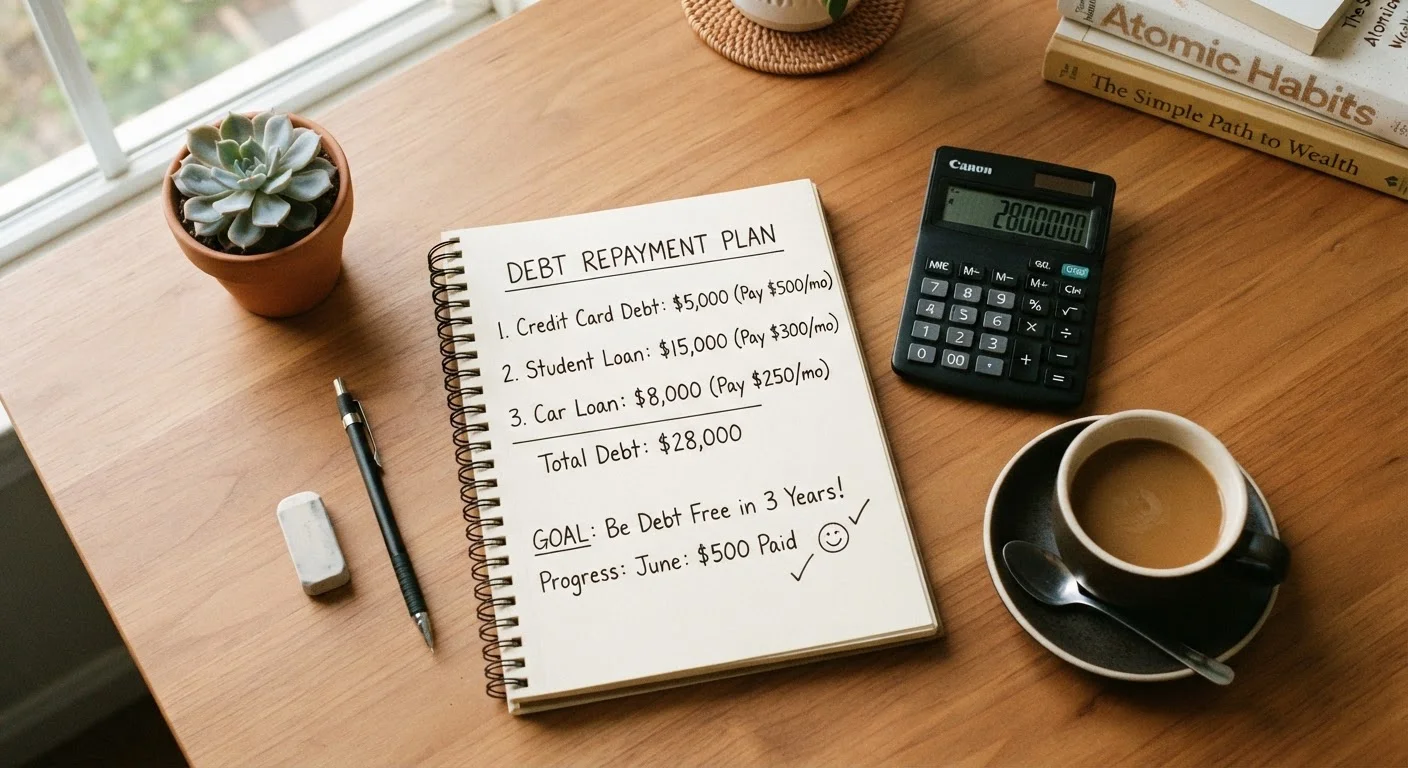 DEBT REPAYMENT PLAN
1. Credit Card Debt: $5,000 (Pay $500/mo)
2. Student Loan: $15,000 (Pay $300/mo)
3. Car Loan: $8,000 (Pay $250/mo)
Total Debt: $28,000
GOAL: Be Debt Free in 3 Years!
Progress: June: $500 Paid
Atomic Habits
The Simple Path to Wealth
Canon
2800000
M-
M-
M+
7 8 9 % √
4 5 6 × ÷
1 2 3 + −
0 00 . =